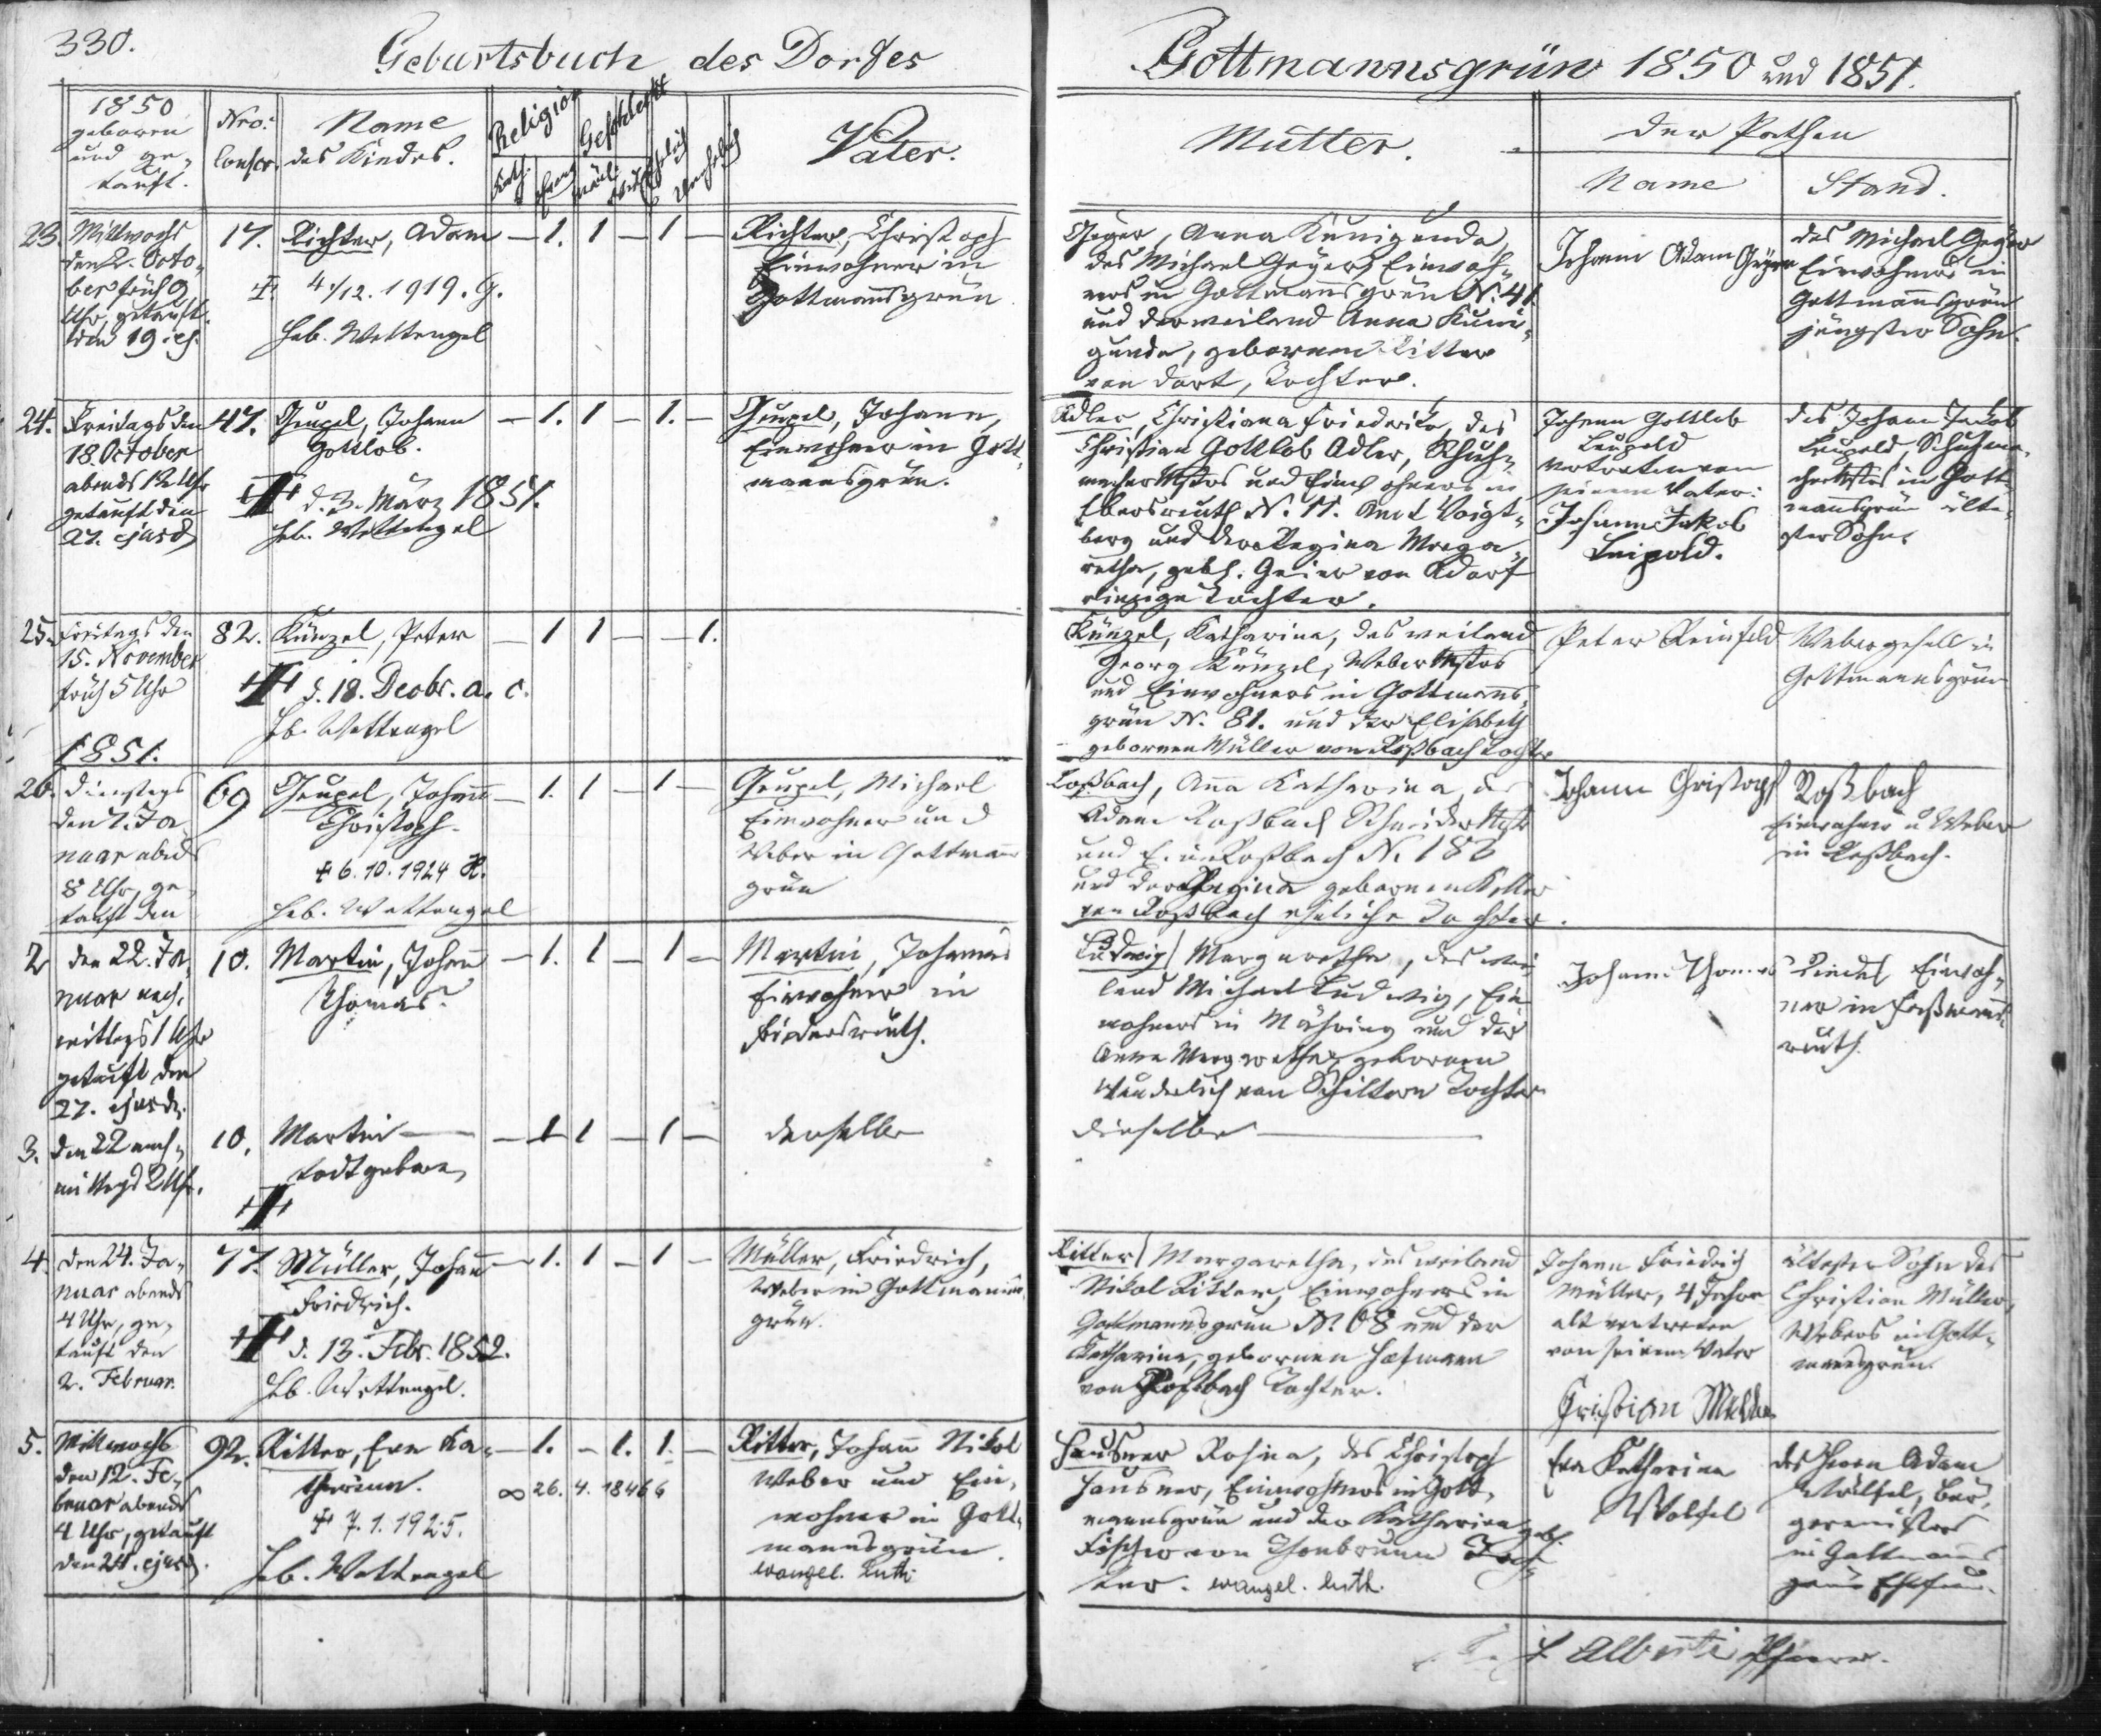 330.
Geburtsbuch des Dorfes
Gottmannsgrün 1850 und 1851.
1850
geboren
und ge-
tauft.
Nro:
conscr.
Name
des Kindes.
Religion
Kath.
Evang.
Geschlecht
männl.
Ehelich
Unehelich
Vater.
Mutter.
der Pathen
Name
Stand.
23.
Mittwochs
den 2. Octo-
ber früh 9
Uhr, getauft
den 19. ej.
17.
Richter, Adam
— 1. 1 — 1 —
+ 4/12. 1919. G.
Heb. Wettengel
Richter, Christoph
Einwohner in
Gottmannsgrün
Geyer, Anna Kunigunda,
des Michael Geyer, Einwoh-
ners in Gottmannsgrün N. 41
und der weiland Anna Kuni-
gunda, gebornen Ritter
von dort, Tochter.
Johann Adam Geyer
des Michael Geyer
Einwohners in
Gottmannsgrün
jüngster Sohn.
24.
Freitags den
18. October
abends 12 Uhr
getauft den
27. ejusd.
47.
Geupel, Johann
Gottlob.
— 1. 1 — 1. —
d. 3. März 1851.
Heb. Wettengel
Geupel, Johann,
Einwohner in Gott-
mannsgrün.
Adler, Christiana Friederika, des
Christian Gottlob Adler, Schuh-
macher Mstrs und Einwohners in
Ebersreuth N. 11. Amt Voigts-
berg und der Regina Marga-
retha, geb. Geier von Adorf
einzige Tochter.
Johann Gottlob
Leupold
vertreten von
seinem Vater:
Johann Jakob
Leipold.
des Johann Jakob
Leupold, Schuhma-
chermstrs in Gott-
mannsgrün älte-
ster Sohn.
25.
Freitags den
15. November
früh 5 Uhr
82.
Künzel, Peter
— 1 1 — — 1.
d. 18. Decbr. a. c.
Hb. Wettengel
Künzel, Katharina, des weiland
Georg Künzel, Weber Mstrs
und Einwohners in Gottmanns-
grün N. 81. und der Elisabeth
gebornen Müller von Roßbach Tochter
Peter Reinfeld
Webergesell in
Gottmannsgrün
1851.
26.
Dienstags
den 7. Ja-
nuar abends
8 Uhr, ge-
tauft den
69
Geupel, Johann
Christoph.
— 1. 1 — 1 —
+ 6. 10. 1924 H.
Heb. Wettengel
Geupel, Michael
Einwohner und
Weber in Gottmanns-
grün
Roßbach, Anna Katharina, des
Adam Roßbach Schneider Mstr
und E. in Roßbach N. 186
und der Regina gebornen Keller
von Roßbach eheliche Tochter.
Johann Christoph
Roßbach
Einwohner u Weber
in Roßbach.
2
den 22. Ja-
nuar nach-
mittags 1 Uhr
getauft den
27. ejusd.
10.
Martin, Johann
Thomas.
— 1. 1 — 1 —
Martin, Johannes
Einwohner in
Friedersreuth.
Ludwig, Margaretha, des wei-
land Michael Ludwig, Ein-
wohners in Mähring und der
Anna Margaretha, gebornen
Wunderlich von Schiltern Tochter
Johann Thomas
Einwoh-
ner in
reuth.
3.
den 22 nach-
mittags 2 Uhr.
10.
Martin —
todtgeboren,
— 1 1 — 1 —
derselbe
dieselbe —
4.
den 24. Ja-
nuar abends
4 Uhr, ge-
tauft den
2. Februar.
77.
Müller, Johann
Friedrich.
— 1. 1 — 1 —
d. 13. Febr. 1852.
Hb. Wettengel.
Müller, Friedrich,
Weber in Gottmanns-
grün.
Ritter, Margaretha, des weiland
Nikol Ritter, Einwohners in
Gottmannsgrün N. 68 und der
Katharina, gebornen Hofmann
von Roßbach Tochter.
Johann Friedrich
Müller, 4 Jahre
alt vertreten
von seinem Vater
Christian Müller
ältester Sohn des
Christian Müller,
Webers in Gott-
mannsgrün
5.
Mittwochs
den 12. Fe-
bruar abends
4 Uhr, getauft
den 24. ejusd.
92.
Ritter, Eva Ka-
tharina.
— 1. — 1. 1. —
∞ 26. 4. 1846 6
+ 7. 1. 1925.
Heb. Wettengel
Ritter, Johann Nikol
Weber und Ein-
wohner in Gott-
mannsgrün.
evangel. luth.
Hausner Rosina, des Christoph
Hausner, Einwohners in Gott-
mannsgrün und der Katharina geb.
Fischer von Thonbrunn Toch-
ter. evangel. luth.
Eva Katharina
Wölfel
des Herrn Adam
Wölfel, Bür-
germeisters
in Gottmanns-
grün Ehefrau.
Alberti Pfarrer.